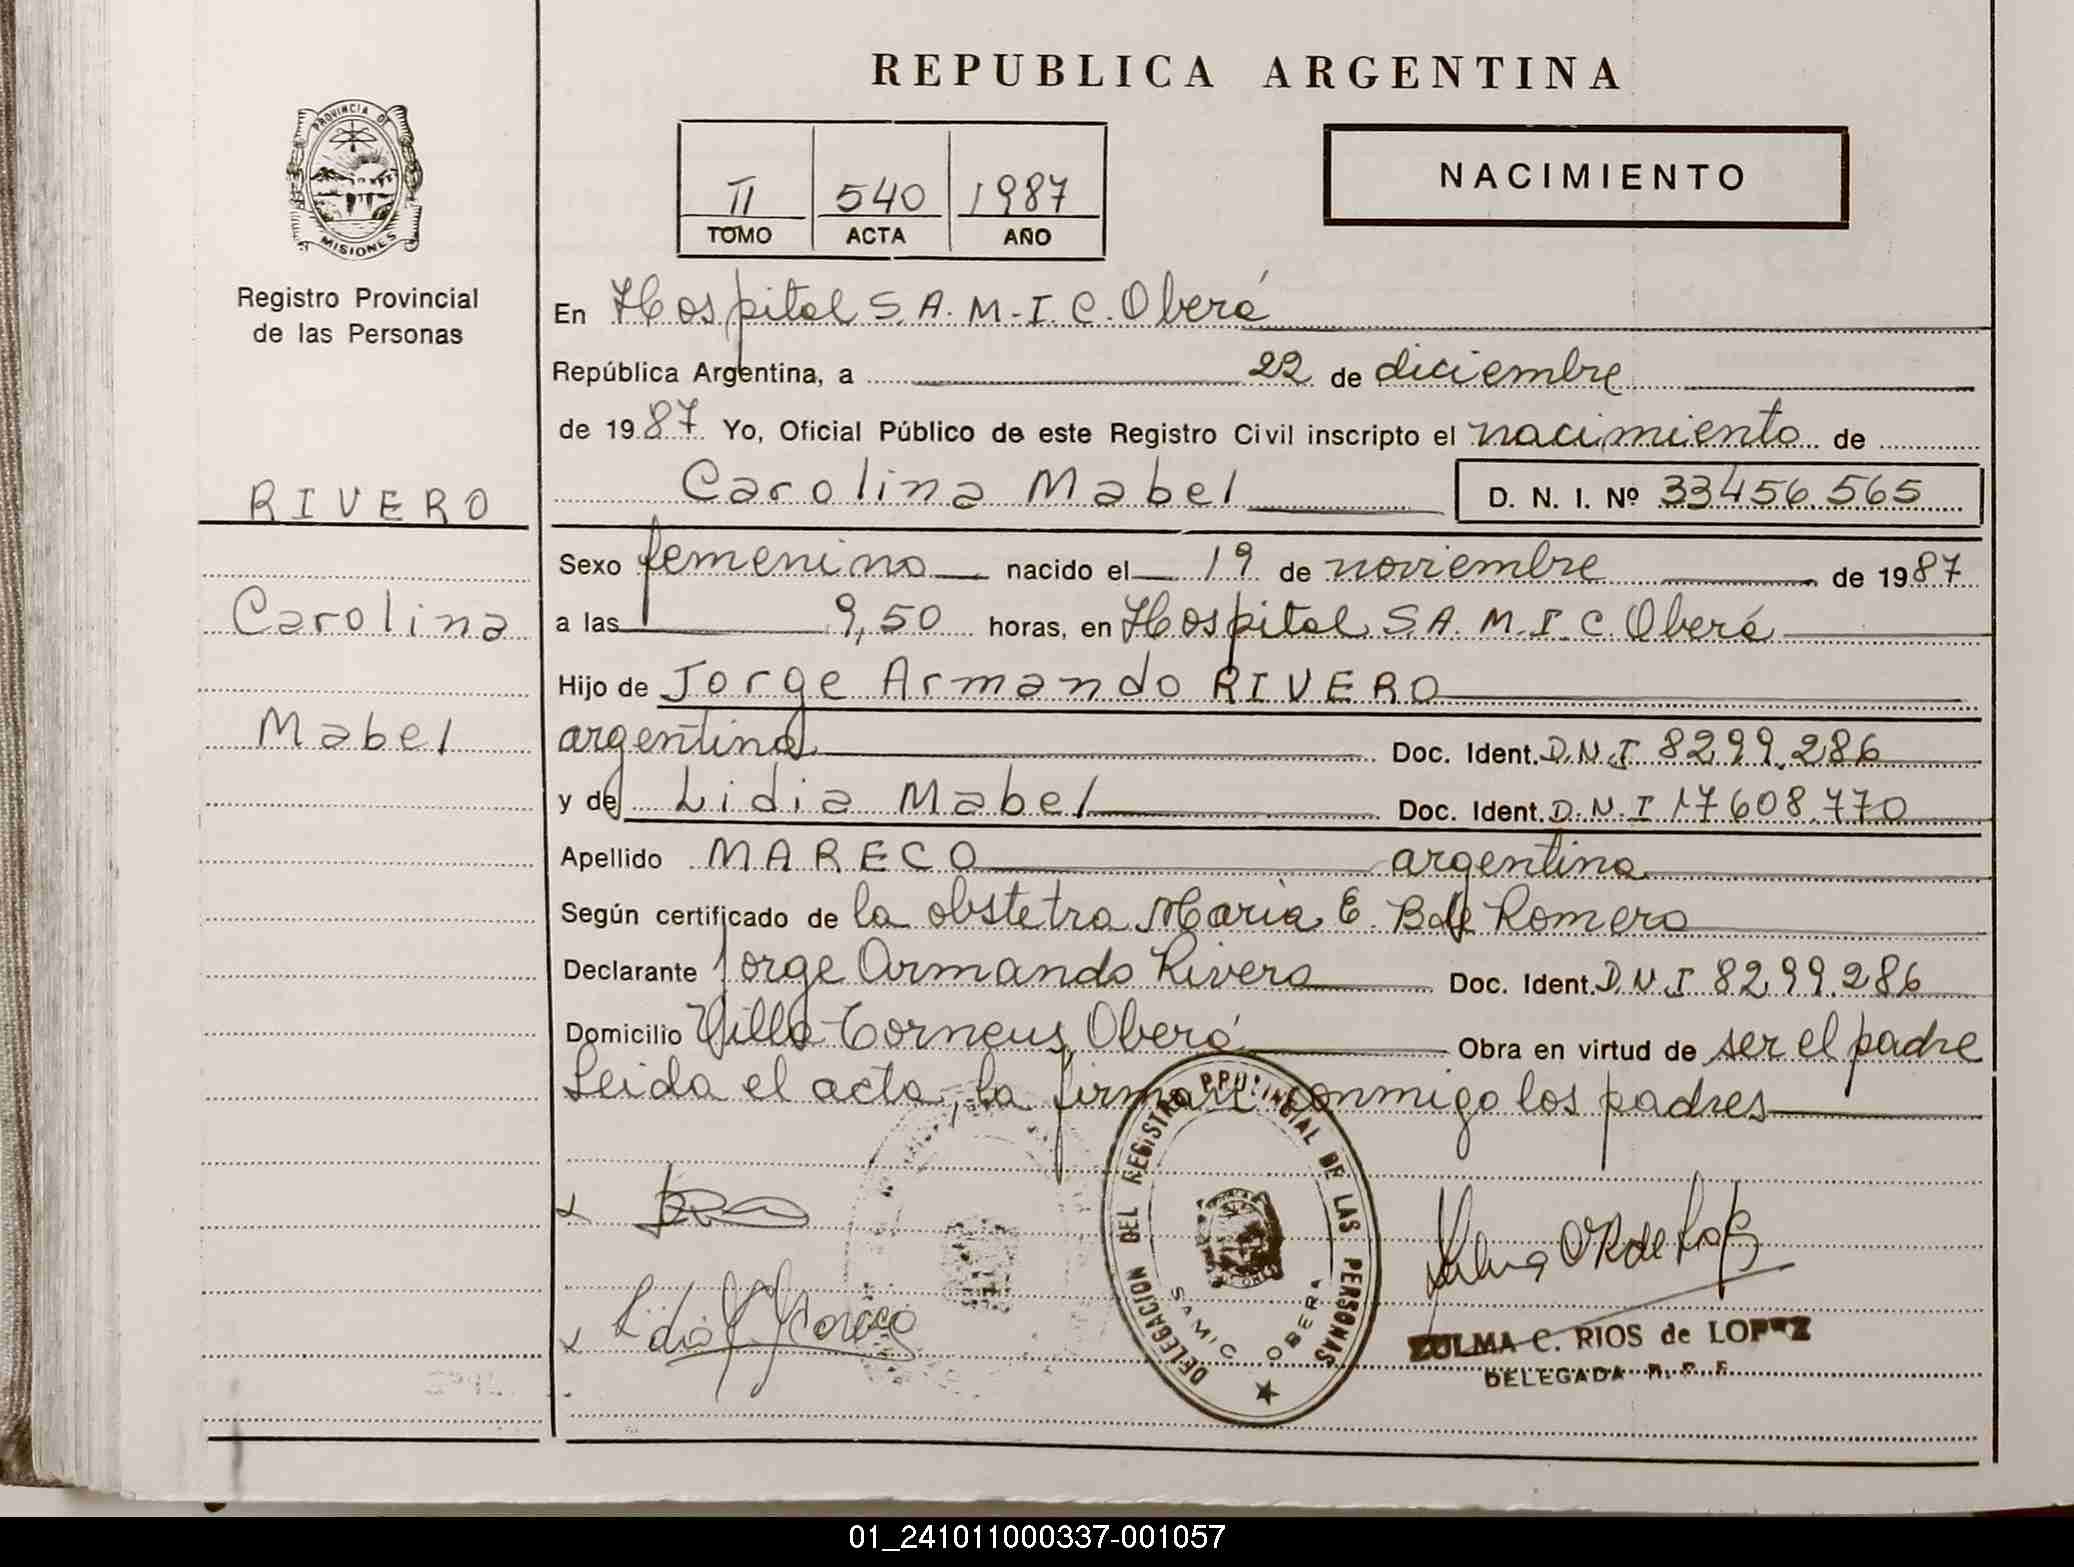 REPUBLICA ARGENTINA
PROVINCIA DE
MISIONES
Registro Provincial
de las Personas
II 540 1987
TOMO ACTA AÑO
NACIMIENTO
En Hospital S.A.M.I.C. Oberá
República Argentina, a 22 de diciembre
de 1987 Yo, Oficial Público de este Registro Civil inscripto el nacimiento de
RIVERO
Carolina Mabel D. N. I. Nº 33456.565
Sexo femenino nacido el 19 de noviembre de 1987
Carolina
a las 9,50 horas, en Hospital S.A.M.I.C. Oberá
Hijo de Jorge Armando RIVERO
Mabel
argentina Doc. Ident. D.N.I 8299.286
y de Lidia Mabel Doc. Ident. D.N.I 17608.770
Apellido MARECO argentina
Según certificado de la obstetra Maria E. B. de Romero
Declarante Jorge Armando Rivero Doc. Ident. D.N.I 8299.286
Domicilio Villa Torneus, Oberá Obra en virtud de ser el padre
Leida el acta, la firman conmigo los padres
DELEGACION DEL REGISTRO PROVINCIAL DE LAS PERSONAS
SAMIC OBERA
ZULMA C. RIOS de LOPEZ
DELEGADA R. P. P.
01_241011000337-001057